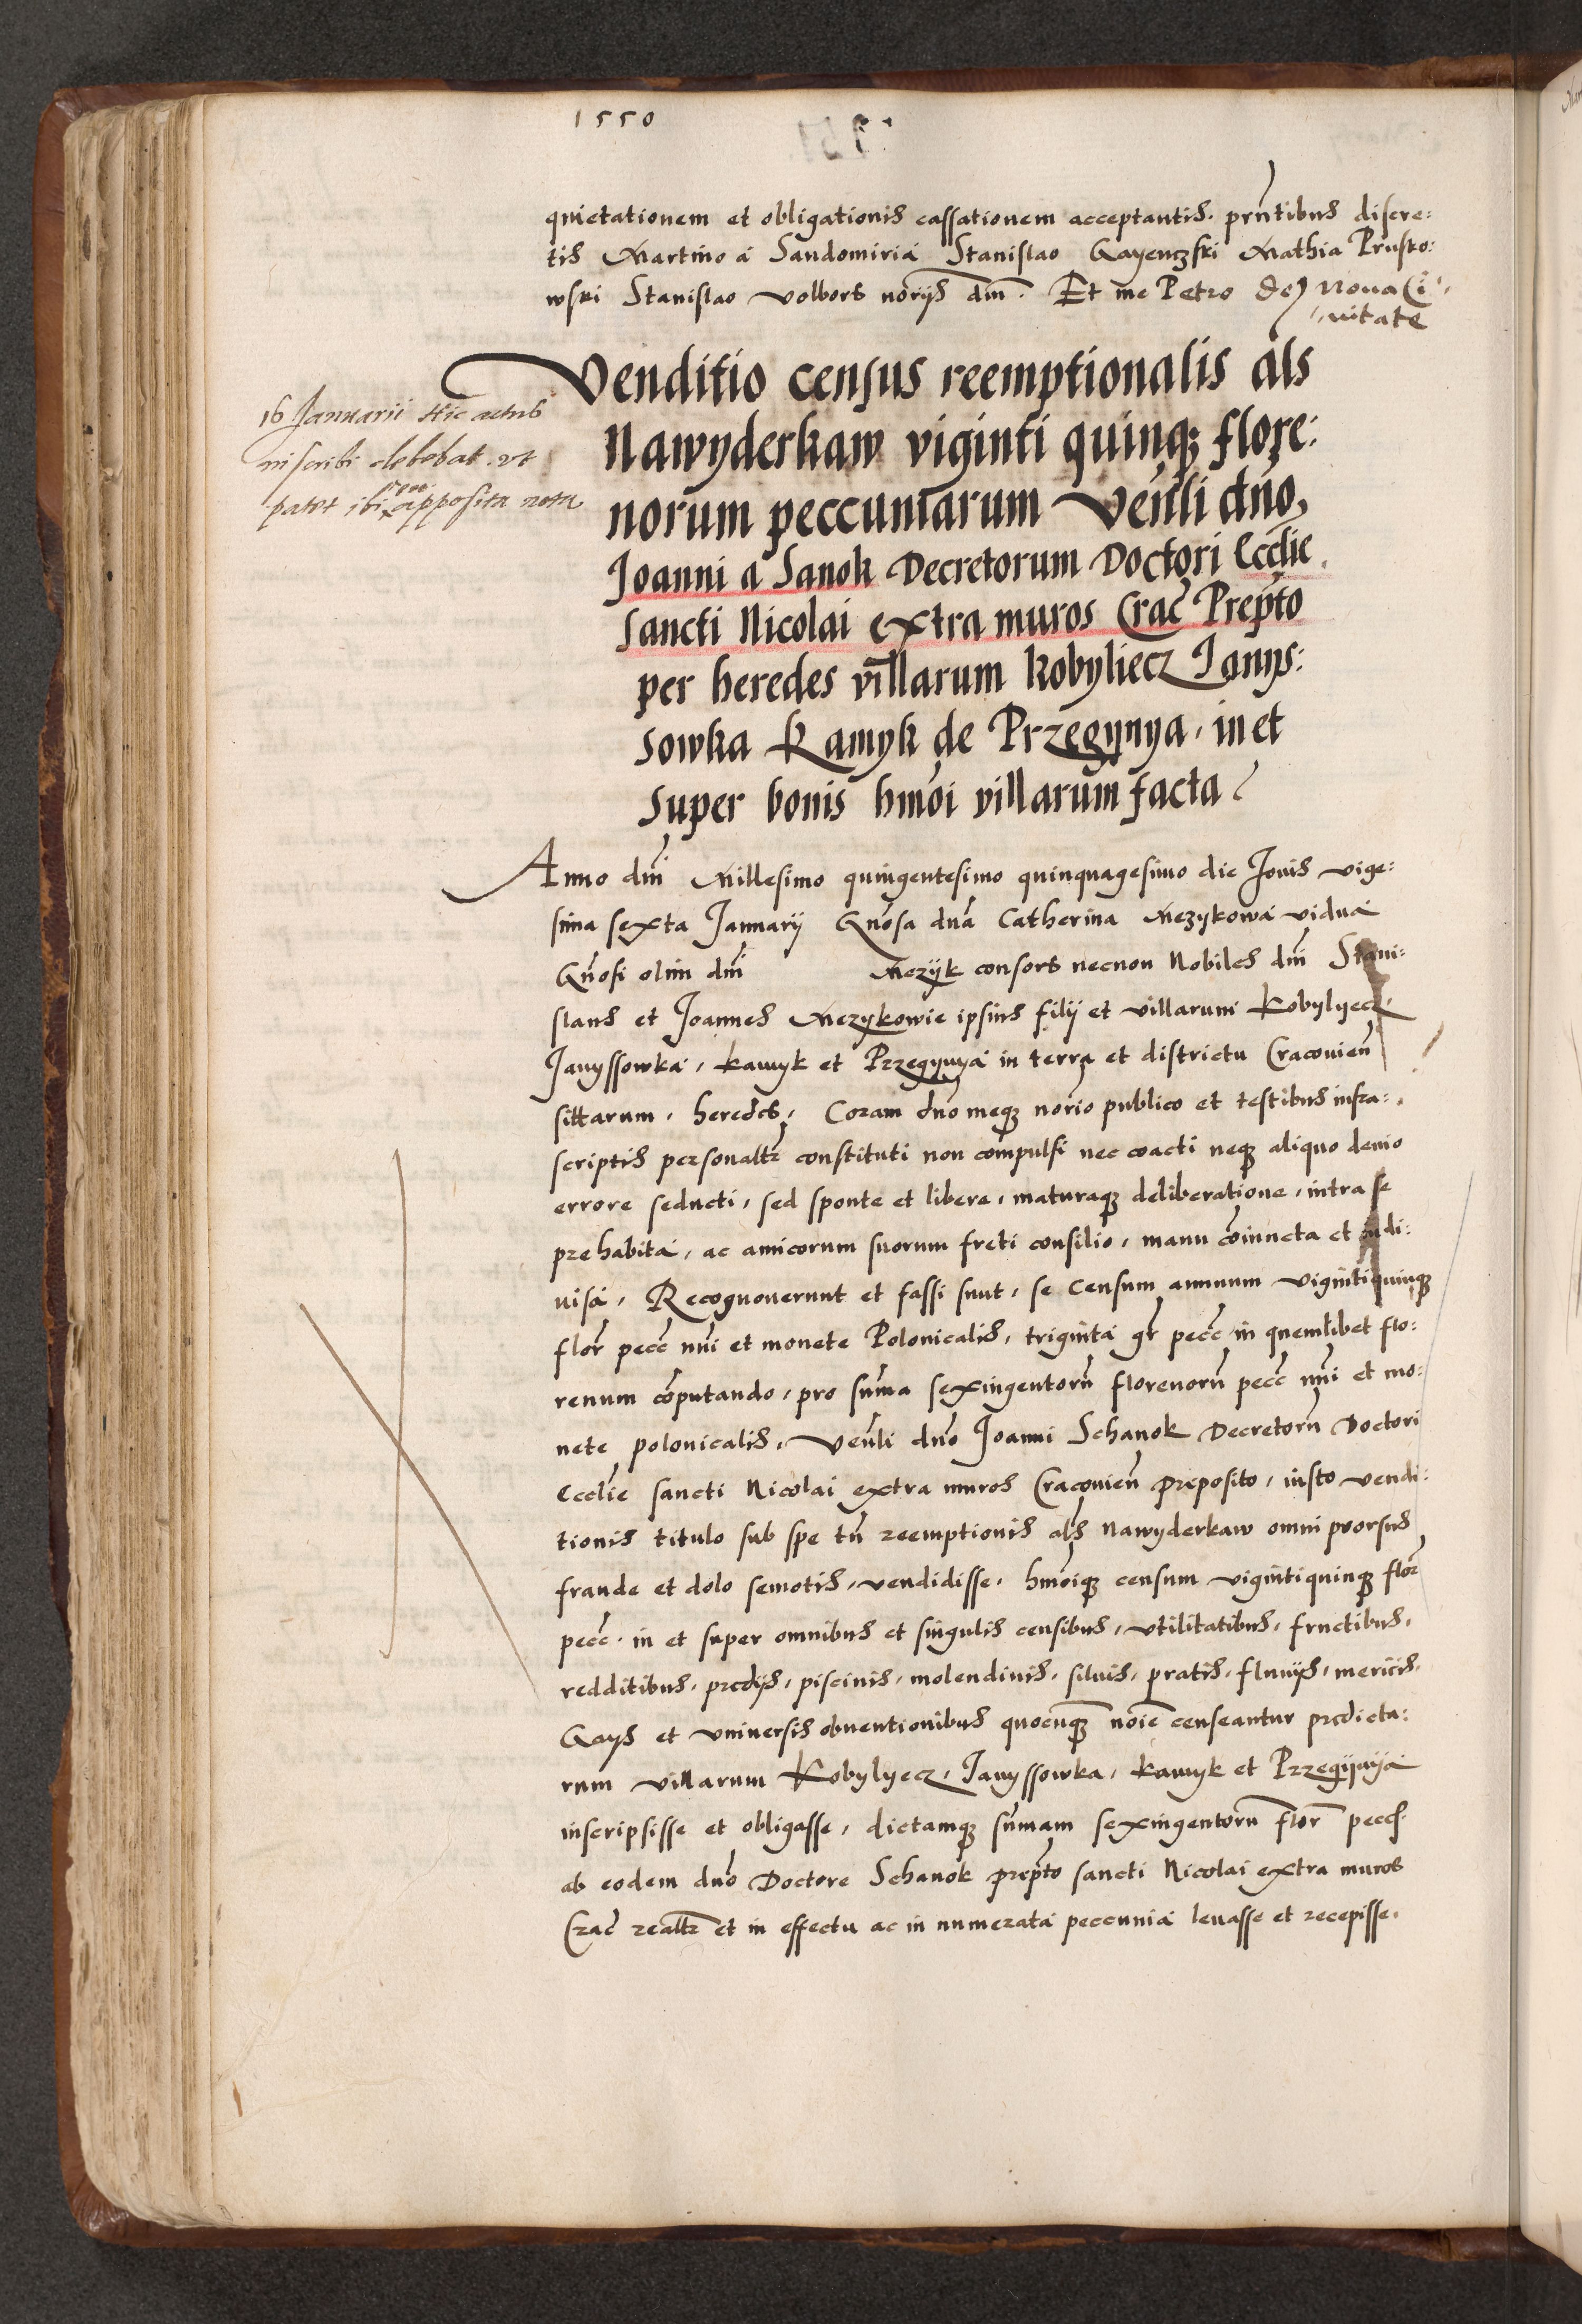 1550
quietationem et obligationis cassationem acceptantis. pñtibus discre:
tis Martino a Sandomiria Stanislao Gayenczski Mathia Prusko:
wski Stanislao Volbors noriis dm̃. Et me Petro de Noua Ci„
„uitate
Venditio census reemptionalis als
Nawyderkaw viginti quinq; flore:
norum peccuniarum Veñli dño,
Joanni a Sanok Decretorum Doctori Eccl̃ie.
Sancti Nicolai extra muros Crac̃ Prep̃to
per heredes villarum Kobyliecz Janys:
sowka Kamyk de Przegynya, in et
super bonis hmõi villarum facta
16 Januarii Hic actus
inscribi debebat. vt
patet ibi apposita nota
Anno dñi Millesimo quingentesimo quinquagesimo die Jouis vige:
sima sexta Januarij Gñosa dña Catherina Mezykowa vidua
Gñosi olim dñi Mezyk consors necnon Nobiles dñi Stani:
slaus et Joannes Mezykowie ipsius filij et villarum Kobylyecz,
Janyssowka, Kamyk et Przegynya in terra et districtu Cracouieñ
sittarum, heredes, Coram dño meq; norio publico et testibus infra:
scriptis personaltr̃ constituti non compulsi nec coacti neq; aliquo deuio
errore seducti, sed sponte et libere, maturaq; deliberatione, intra se
prehabita, ac amicorum suorum freti consilio, manu cõiuncta et indi:
uisa, Recognouerunt et fassi sunt, se Censum annuum vigintiquinq;
flor̃ pecc̃ nñi et monete Polonicalis, triginta gr̃ pecc̃ in quemlibet flo:
renum cõputando, pro sum̃a sexingentorũ florenorũ pecc̃ nñi et mo:
nete polonicalis, Veñli dño Joanni Schanok Decretorũ Doctori
Eccl̃ie sancti Nicolai extra muros Cracouieñ preposito, iusto vendi:
tionis titulo sub spe tñ reemptionis als nawyderkaw omni prorsus
fraude et dolo semotis, vendidisse, hmõiq; censum vigintiquinq; flor̃
pecc̃. in et super omnibus et singulis censibus, vtilitatibus, fructibus,
redditibus, predijs, piscinis, molendinis, siluis, pratis, fluuijs, mericis,
Gays et vniuersis obuentionibus quocunq; noĩe censeantur predicta:
rum villarum Kobylyecz, Janyssowka, Kamyk et Przegynya
inscripsisse et obligasse, dictamq; sum̃am sexingentorũ flor̃ pecc̃
ab eodem dño Doctore Schanok prep̃to sancti Nicolai extra muros
Crac̃ realtr̃ et in effectu ac in numerata peccunia leuasse et recepisse.